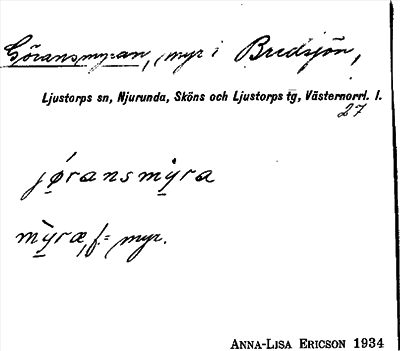 Göransmyran, myr i Bredsjön,
Ljustorps sn, Njurunda, Sköns och Ljustorps tg, Västernorrl. l.
27
jǿransmýra
mỳræ, f. = myr.
ANNA-LISA ERICSON 1934